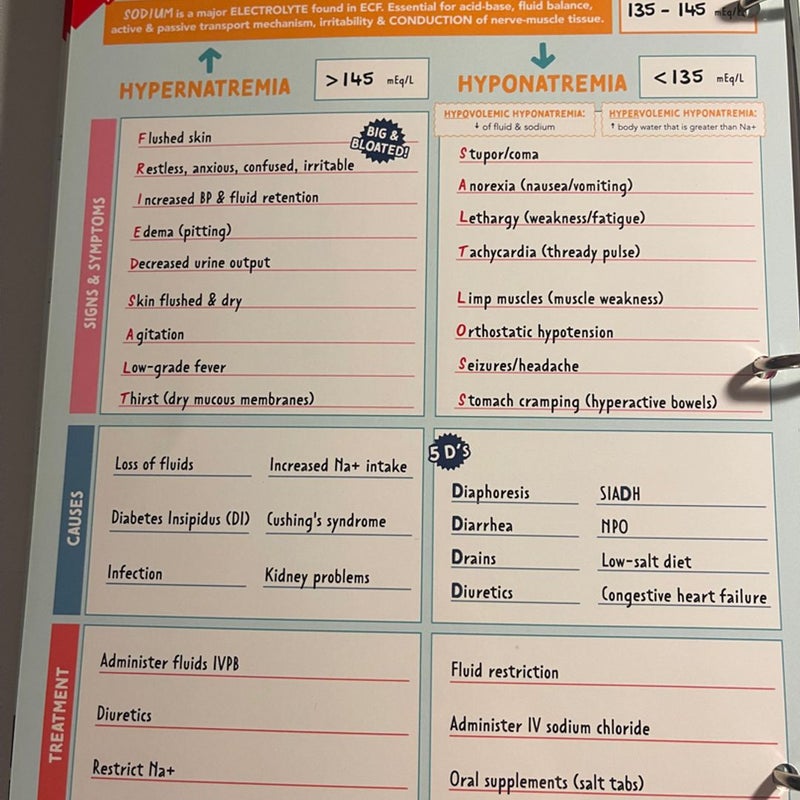 SODIUM is a major ELECTROLYTE found in ECF. Essential for acid-base, fluid balance,
active & passive transport mechanism, irritability & CONDUCTION of nerve-muscle tissue.
135 - 145 mEq/L
HYPERNATREMIA
>145 mEq/L
HYPONATREMIA
<135 mEq/L
SIGNS & SYMPTOMS
BIG &
BLOATED!
Flushed skin
Restless, anxious, confused, irritable
Increased BP & fluid retention
Edema (pitting)
Decreased urine output
Skin flushed & dry
Agitation
Low-grade fever
Thirst (dry mucous membranes)
HYPOVOLEMIC HYPONATREMIA:
↓ of fluid & sodium
HYPERVOLEMIC HYPONATREMIA:
↑ body water that is greater than Na+
Stupor/coma
Anorexia (nausea/vomiting)
Lethargy (weakness/fatigue)
Tachycardia (thready pulse)
Limp muscles (muscle weakness)
Orthostatic hypotension
Seizures/headache
Stomach cramping (hyperactive bowels)
CAUSES
Loss of fluids
Increased Na+ intake
Diabetes Insipidus (DI)
Cushing's syndrome
Infection
Kidney problems
5 D's
Diaphoresis
SIADH
Diarrhea
NPO
Drains
Low-salt diet
Diuretics
Congestive heart failure
TREATMENT
Administer fluids IVPB
Diuretics
Restrict Na+
Fluid restriction
Administer IV sodium chloride
Oral supplements (salt tabs)